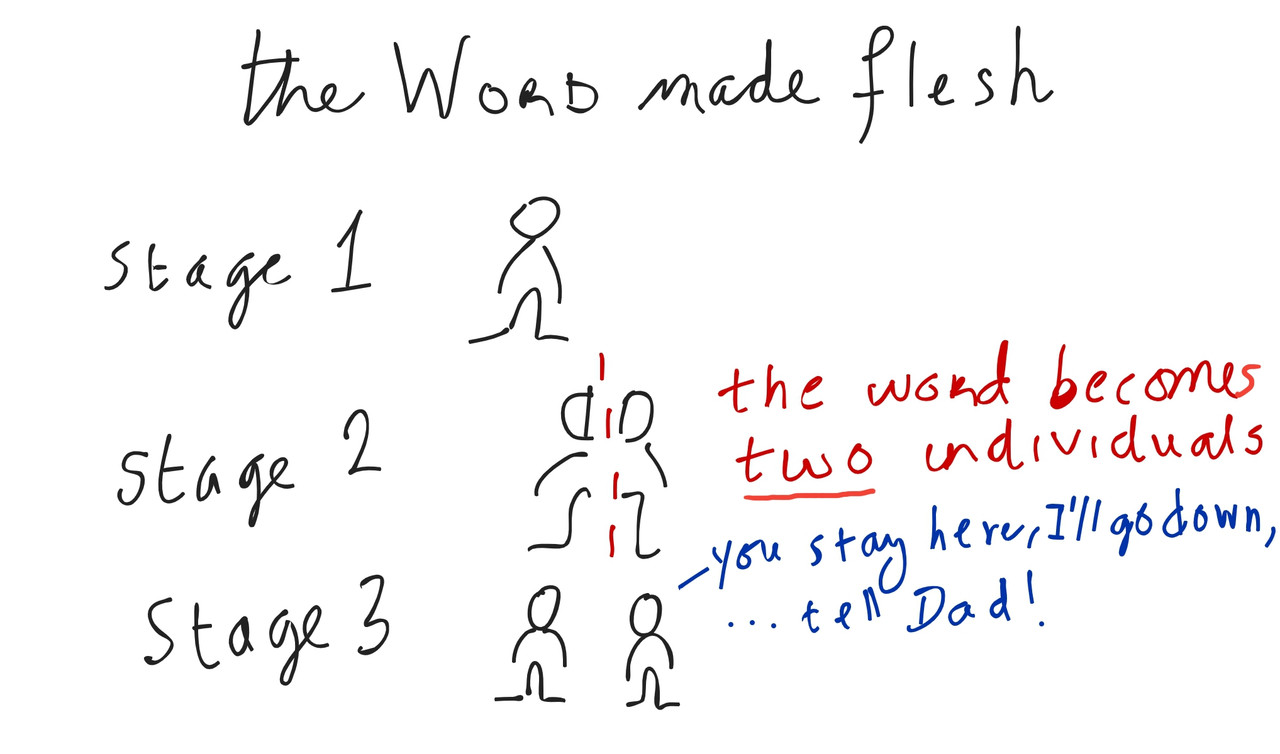 the WORD made flesh
stage 1
the word becomes
stage 2
two individuals
you stay here, I'll go down,
... tell Dad!
Stage 3